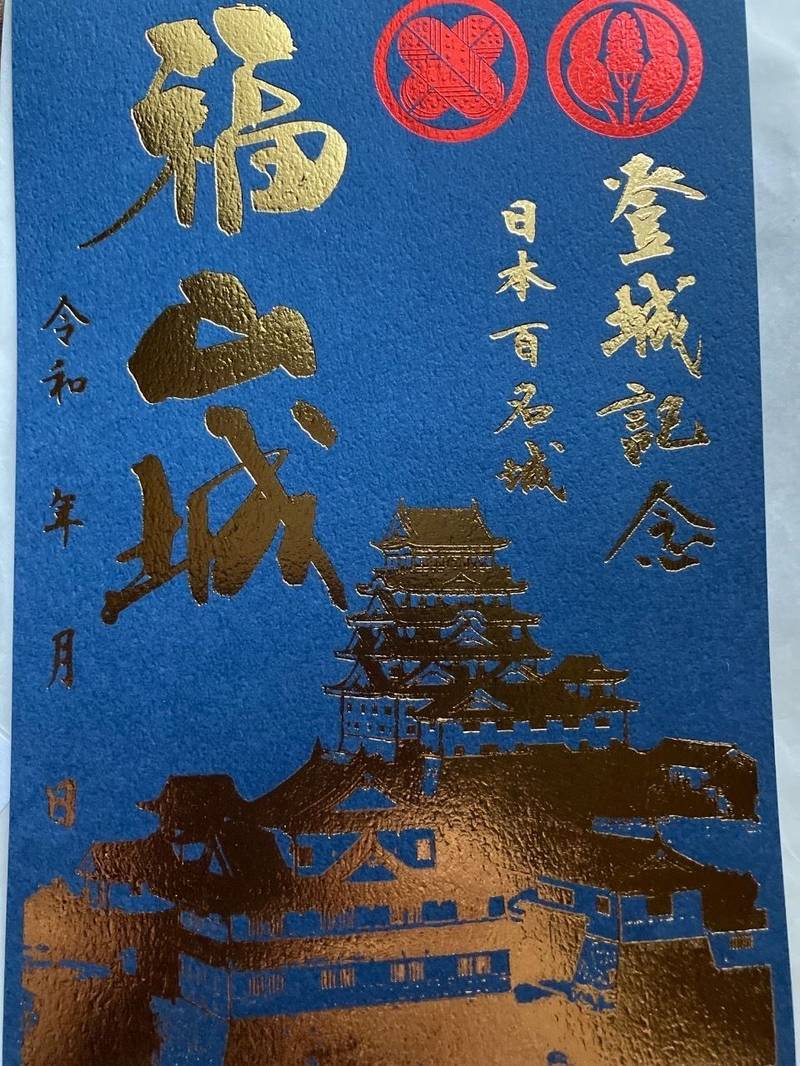 登城記念
日本百名城
福山城
令和 年 月 日